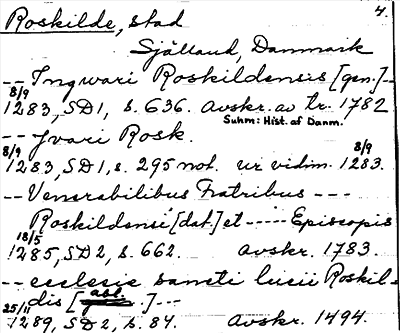 Roskilde, stad 4.
Själland, Danmark
-- Ingwari Roskildensis [gen.] --
8/9
1283, SD1, s. 636. avskr. av tr. 1782
Suhm: Hist. af Danm.
-- Jvari Rosk.
8/9 8/9
1283, SD1, s. 295 not. ur vidim. 1283.
-- Venerabilibus Fratribus ---
Roskildensi [dat.] et ----- Episcopis
18/5
1285, SD2, s. 662. avskr. 1783.
-- ecclesie sancti lucii Roskil-
abl.
dis [ .] --
25/11
1289, SD2, s. 84. avskr. 1494.